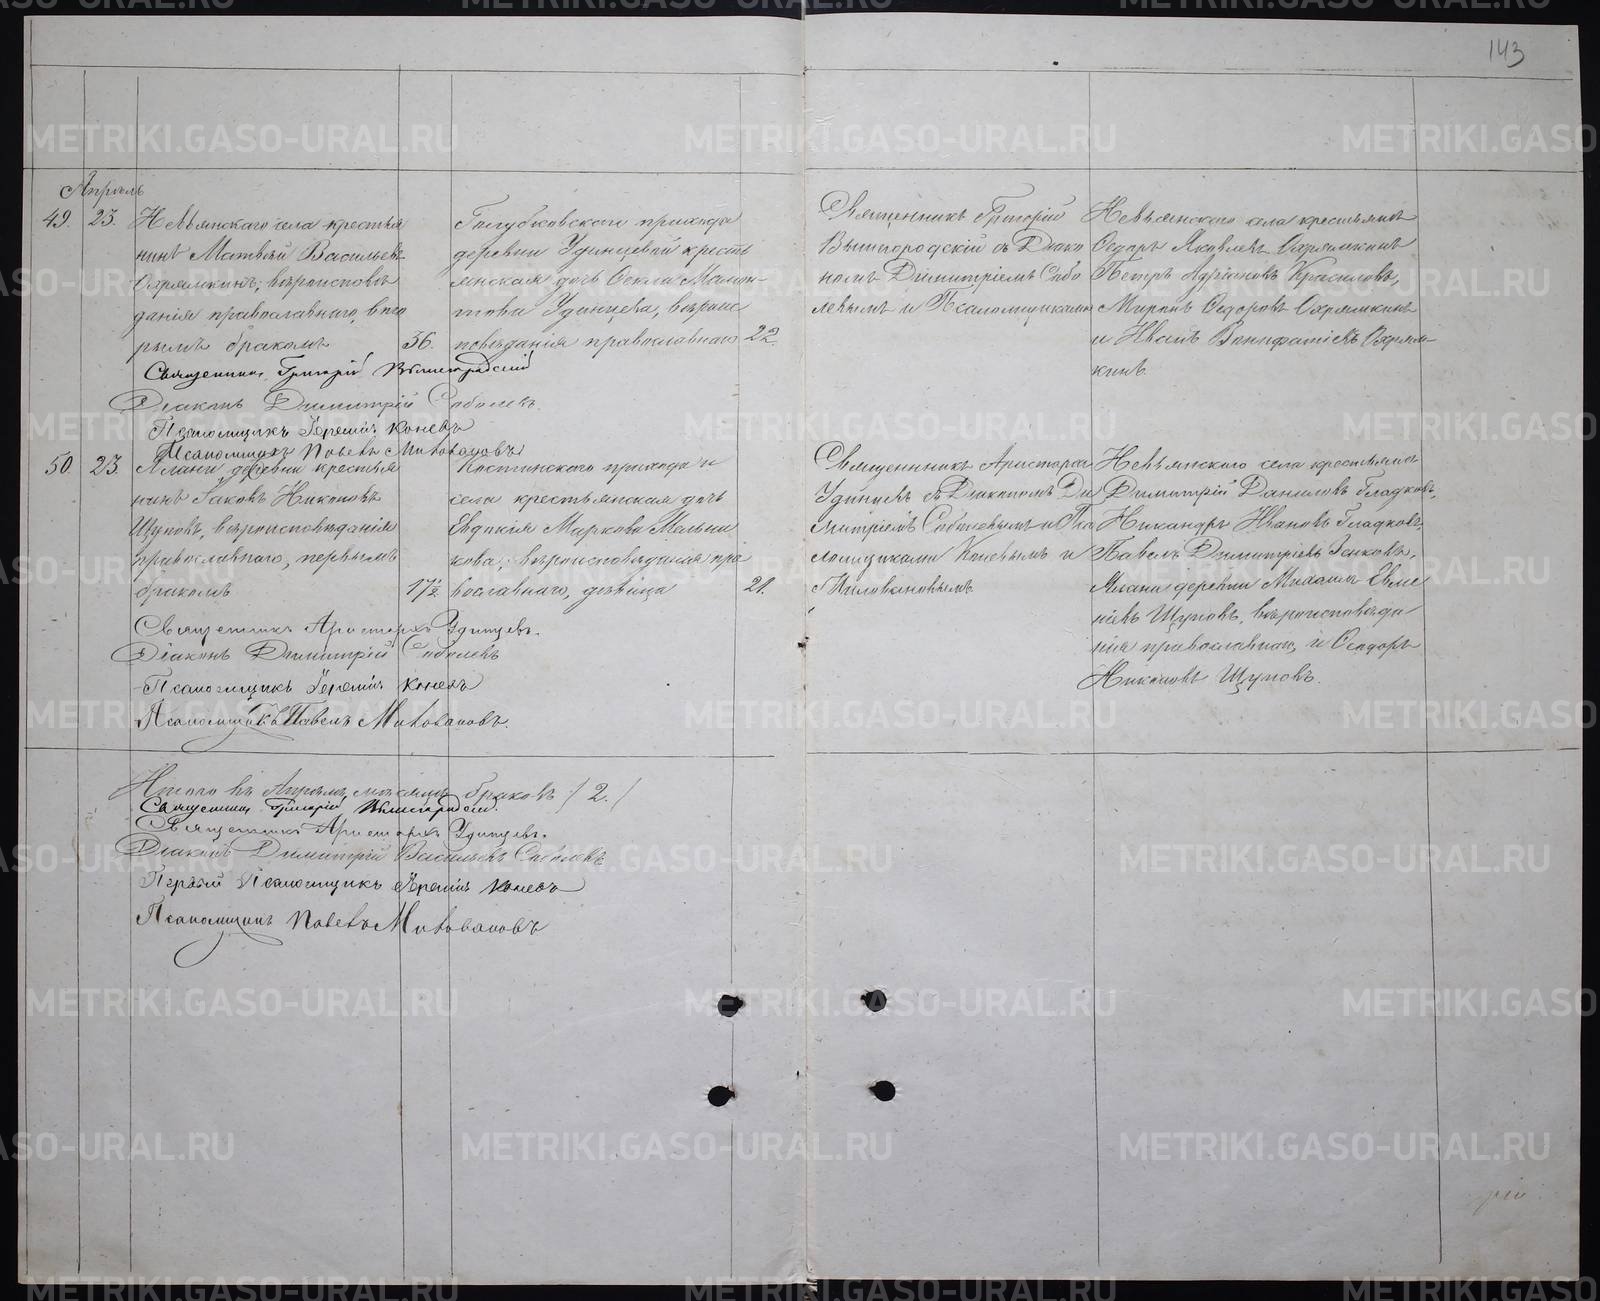 143
Апрѣль
49. 23. Невьянскаго села крестья
нинъ Матвѣй Васильевъ
Охрямкинъ, вѣроисповѣ
данія православнаго, вто
рымъ бракомъ 36.
Голубковскаго прихода
деревни Удинцевой кресть
янская дочь Ѳекла Мамон
това Удинцева, вѣроис
повѣданія православнаго 22.
Священникъ Григорій
Вышгородскій съ Діако
номъ Димитріемъ Собо
левымъ и Псаломщиками
Невьянскаго села крестьяне
Ѳедоръ Яковлевъ Охрямкинъ
Петръ Адріановъ Красиловъ,
Миронъ Ѳедоровъ Охрямкинъ
и Иванъ Вонифатіевъ Охрям-
кинъ.
Священникъ Григорій Вышгородскій
Діаконъ Димитрій Соболевъ.
Псаломщикъ Іеремія Коневъ
Псаломщикъ Павелъ Миловановъ
50. 23. Ялани деревни крестья
нинъ Іаковъ Никоновъ
Щуповъ, вѣроисповѣданія
православнаго, первымъ
бракомъ 17½
Костинскаго прихода и
села крестьянская дочь
Евдокія Маркова Мальни
кова, вѣроисповѣданія пра
вославнаго, дѣвица 21.
Священникъ Аристархъ
Удинцевъ съ Діакономъ Ди
митріемъ Соболевымъ и Пса
ломщиками Коневымъ и
Миловановымъ.
Невьянскаго села крестьяне
Димитрій Даниловъ Гладковъ,
Никандръ Ивановъ Гладковъ,
Павелъ Димитріевъ Зенковъ,
Ялани деревни Михаилъ Евме
ніевъ Щуповъ, вѣроисповѣда
нія православнаго, и Ѳеодоръ
Никоновъ Щуповъ.
Священникъ Аристархъ Удинцевъ.
Діаконъ Димитрій Соболевъ
Псаломщикъ Іеремія Коневъ
Псаломщикъ Павелъ Миловановъ.
Итого въ Апрѣлѣ мѣсяцѣ браковъ /2./
Священникъ Григорій Вышгородскій.
Священникъ Аристархъ Удинцевъ.
Діаконъ Димитрій Васильевъ Соболевъ
Первый Псаломщикъ Іеремія Коневъ
Псаломщикъ Павелъ Миловановъ
METRIKI.GASO-URAL.RU